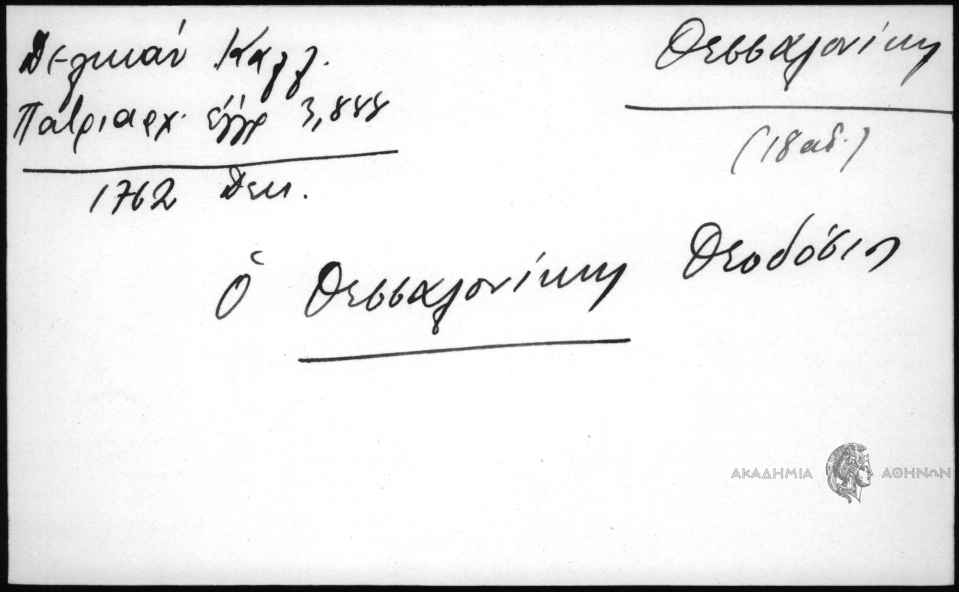 Δελικάν Καλλ.
Πατριαρχ. ἔγγρ 3,888
1762 Δεκ.
Θεσσαλονίκη
(18 αἰ.)
ὁ Θεσσαλονίκης Θεοδόσιος
ΑΚΑΔΗΜΙΑ ΑΘΗΝΩΝ